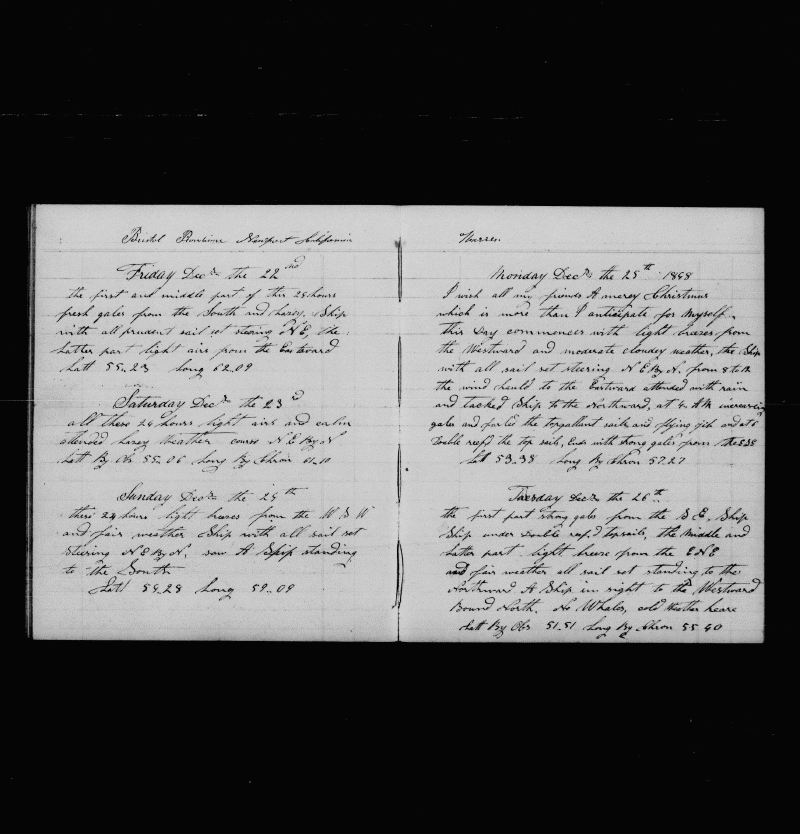 Bristol Providence Newport California
Friday Decm the 22nd
the first and middle part of this 24 hours
fresh gales from the South and hazey, Ship
with all prudent sail set steering N E, the
Latter part light airs from the Eastward
Latt 55..23 Long 62.09
Saturday Decm the 23d
all these 24 hours light airs and calm
attended hazey Weather course N E By N
Latt By Obs 55..06 Long By Chron 61..0
Sunday Decm the 24th
these 24 hours light breeses from the W S W
and fair weather Ship with all sail set
steering N E By N. saw A Ship standing
to the South
Latt 54..28 Long 59..09
Warren
Monday Decm the 25th 1848
I wish all my friends A merey Christmas
which is more than I anticipate for Myself.
this Day commences with light breezes from
the Westward and moderate cloudey weather, the Ship
with all sail set steering N E By N. from 8 to M
the wind hauld to the Eastward attended with rain
and tacked Ship to the Northward, at 4 A M increasing
gales and furled the topgallant sails and flying jib and at 6
Double reef'd the top sails, Ends with strong gales from the ESE
Latt 53..38 Long By Chron 57.27
Tuesday Decm the 26th
the first part strong gales from the S E, Ship
Ship under Double reef'd topsails, the Middle and
Latter part light breese from the E N E
and fair weather all sail set standing to the
Northward A Ship in sight to the Westward
Bound North. No Whales, cold Weather heare
Latt By Obs 51..51 Long By Chron 55 40